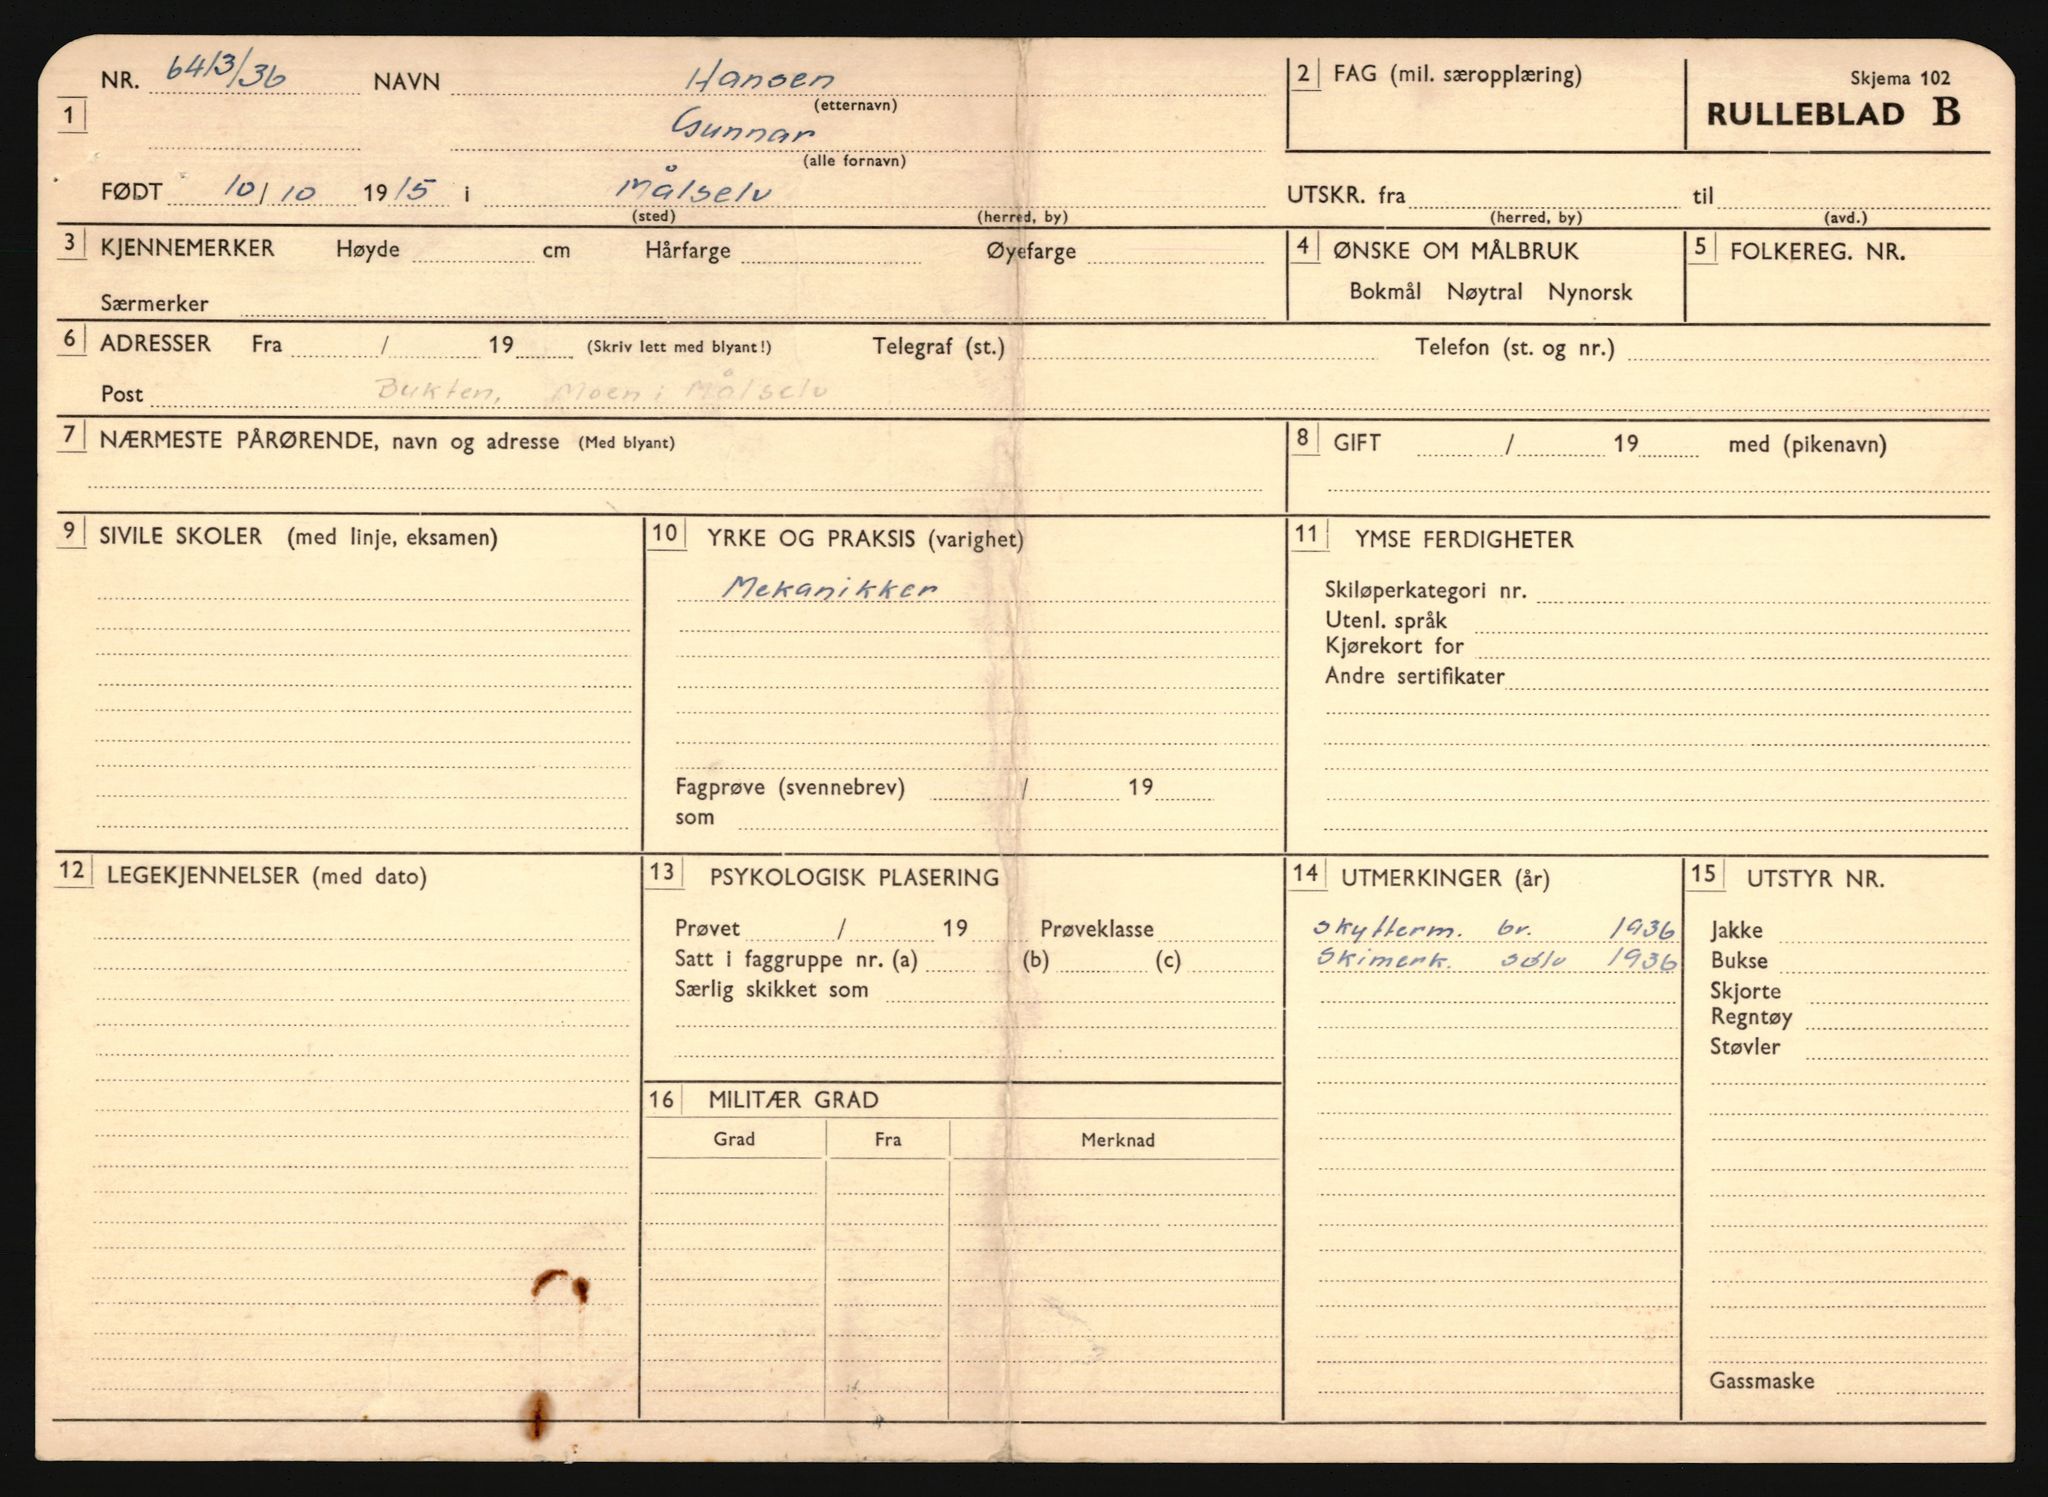 NR. 6413/36 NAVN Hansen 2 FAG (mil. særopplæring) Skjema 102
(etternavn) RULLEBLAD B
1 Gunnar
(alle fornavn)
FØDT 10/10 1915 i Målselv UTSKR. fra til
(sted) (herred, by) (herred, by) (avd.)
3 KJENNEMERKER Høyde cm Hårfarge Øyefarge 4 ØNSKE OM MÅLBRUK 5 FOLKEREG. NR.
Særmerker Bokmål Nøytral Nynorsk
6 ADRESSER Fra / 19 (Skriv lett med blyant!) Telegraf (st.) Telefon (st. og nr.)
Post Bukten, Moen i Målselv
7 NÆRMESTE PÅRØRENDE, navn og adresse (Med blyant) 8 GIFT / 19 med (pikenavn)
9 SIVILE SKOLER (med linje, eksamen) 10 YRKE OG PRAKSIS (varighet) 11 YMSE FERDIGHETER
Mekanikker Skiløperkategori nr.
Utenl. språk
Kjørekort for
Andre sertifikater
Fagprøve (svennebrev) / 19
som
12 LEGEKJENNELSER (med dato) 13 PSYKOLOGISK PLASERING 14 UTMERKINGER (år) 15 UTSTYR NR.
Prøvet / 19 Prøveklasse Skytterm. br. 1936 Jakke
Satt i faggruppe nr. (a) (b) (c) Skimerk. sølv 1936 Bukse
Særlig skikket som Skjorte
Regntøy
Støvler
16 MILITÆR GRAD
Grad Fra Merknad
Gassmaske